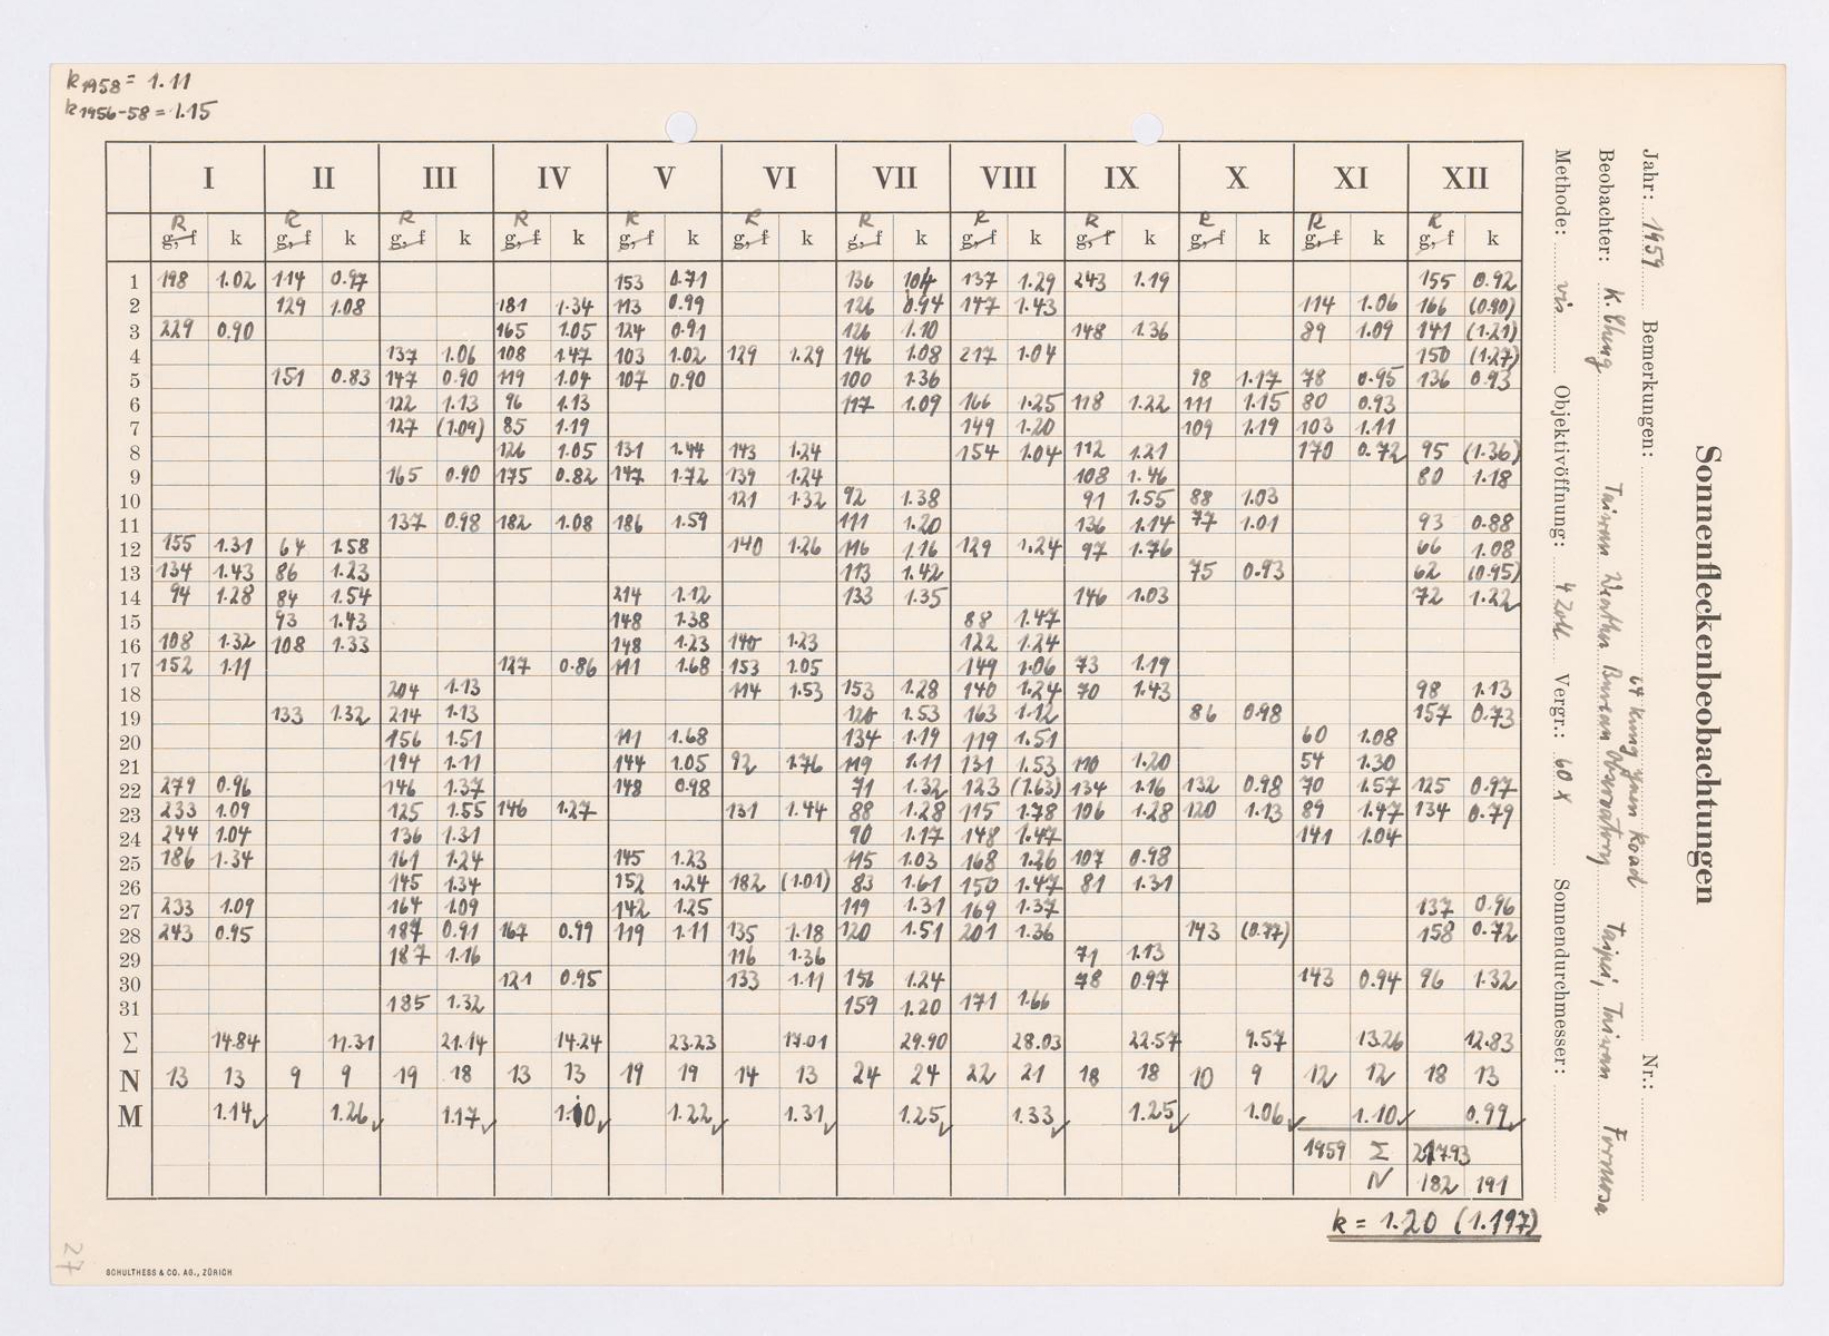 k1958 = 1.11
k1956-58 = 1.15
Sonnenfleckenbeobachtungen
Jahr: 1959 Bemerkungen: 64 Kung Yuan Road Nr.:
Beobachter: K. Chung Taiwan Weather Bureau Observatory Taipei, Taiwan Formosa
Methode: vis Objektivöffnung: 4 Zoll Vergr.: 60 x Sonnendurchmesser:
I II III IV V VI VII VIII IX X XI XII
R R R R R R R R R R R R
g, f k g, f k g, f k g, f k g, f k g, f k g, f k g, f k g, f k g, f k g, f k g, f k
1 198 1.02 114 0.97 153 0.71 136 104 137 1.29 243 1.19 155 0.92
2 129 1.08 181 1.34 113 0.99 126 0.94 147 1.43 114 1.06 166 (0.90)
3 229 0.90 165 1.05 124 0.91 126 1.10 148 1.36 89 1.09 141 (1.21)
4 137 1.06 108 1.47 103 1.02 129 1.29 146 1.08 217 1.04 150 (1.27)
5 151 0.83 147 0.90 119 1.04 107 0.90 100 1.36 98 1.17 78 0.95 136 0.93
6 122 1.13 96 1.13 117 1.09 166 1.25 118 1.22 111 1.15 80 0.93
7 127 (1.09) 85 1.19 149 1.20 109 1.19 103 1.11
8 126 1.05 131 1.44 143 1.24 154 1.04 112 1.21 170 0.72 95 (1.36)
9 165 0.90 175 0.82 147 1.72 139 1.24 108 1.46 80 1.18
10 121 1.32 92 1.38 91 1.55 88 1.03
11 137 0.98 182 1.08 186 1.59 111 1.20 136 1.14 77 1.01 93 0.88
12 155 1.31 64 1.58 140 1.26 116 1.16 129 1.24 97 1.76 66 1.08
13 134 1.43 86 1.23 113 1.42 75 0.93 62 (0.95)
14 94 1.28 84 1.54 214 1.12 133 1.35 146 1.03 72 1.22
15 93 1.43 148 1.38 88 1.47
16 108 1.32 108 1.33 148 1.23 140 1.23 122 1.24
17 152 1.11 127 0.86 111 1.68 153 1.05 149 1.06 73 1.19
18 204 1.13 114 1.53 153 1.28 140 1.24 70 1.43 98 1.13
19 133 1.32 214 1.13 120 1.53 163 1.12 86 0.98 157 0.73
20 156 1.51 111 1.68 134 1.19 119 1.51 60 1.08
21 194 1.11 144 1.05 92 1.76 119 1.11 131 1.53 110 1.20 54 1.30
22 279 0.96 146 1.37 148 0.98 71 1.32 123 (1.63) 134 1.16 132 0.98 70 1.57 125 0.97
23 233 1.09 125 1.55 146 1.27 131 1.44 88 1.28 115 1.78 106 1.28 120 1.13 89 1.47 134 0.79
24 244 1.04 136 1.31 90 1.17 148 1.47 141 1.04
25 186 1.34 161 1.24 145 1.23 115 1.03 168 1.26 107 0.98
26 145 1.34 152 1.24 182 (1.01) 83 1.61 150 1.47 81 1.31
27 233 1.09 164 1.09 142 1.25 119 1.31 169 1.37 137 0.96
28 243 0.95 187 0.91 167 0.99 119 1.11 135 1.18 120 1.51 201 1.36 143 (0.77) 158 0.72
29 187 1.16 116 1.36 71 1.13
30 121 0.95 133 1.11 156 1.24 78 0.97 143 0.94 96 1.32
31 185 1.32 159 1.20 171 1.66
Σ 14.84 11.31 21.14 14.24 23.23 17.01 29.90 28.03 22.57 9.57 13.26 12.83
N 13 13 9 9 19 18 13 13 19 19 14 13 24 24 22 21 18 18 10 9 12 12 18 13
M 1.14✓ 1.26✓ 1.17✓ 1.10✓ 1.22✓ 1.31✓ 1.25✓ 1.33✓ 1.25✓ 1.06✓ 1.10✓ 0.99✓
1959 Σ 217.93
N 182 191
k = 1.20 (1.197)
27
SCHULTHESS & CO. AG., ZÜRICH